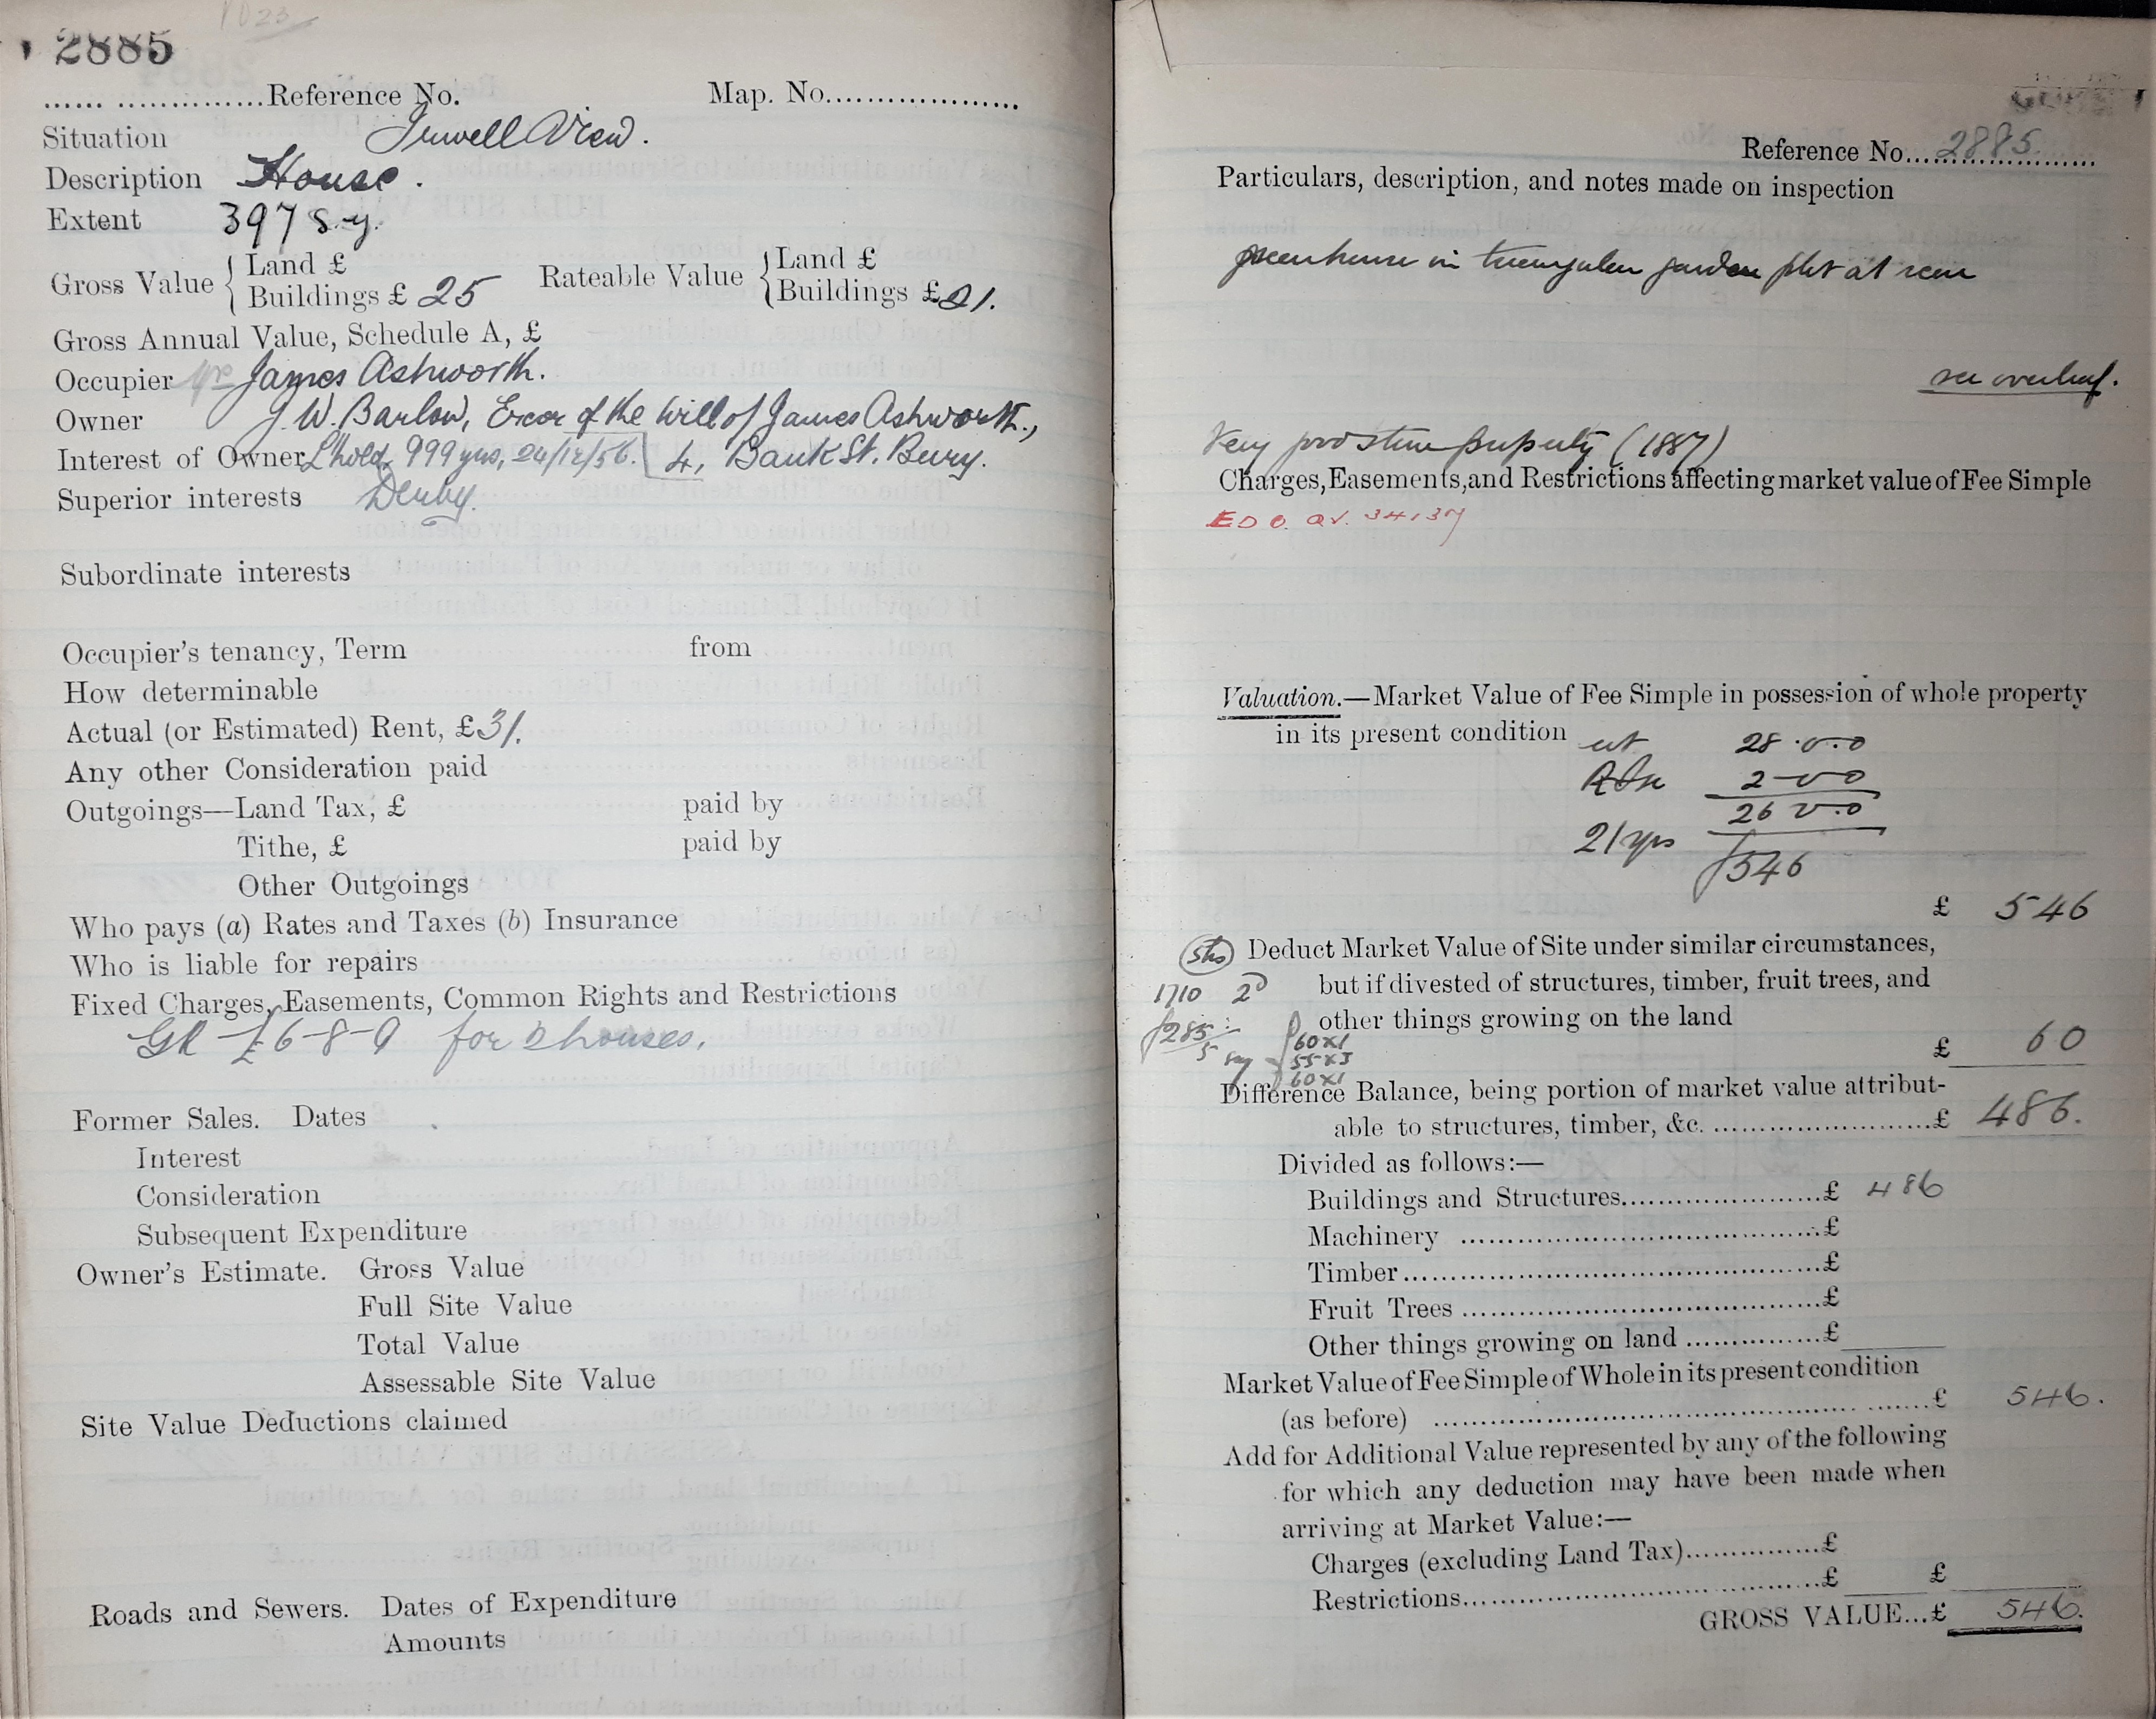 2885
...... ...............Reference No. Map. No....................
Situation Irwell View.
Description House.
Extent 397 S.y.
Gross Value { Land £
Buildings £ 25
Rateable Value { Land £
Buildings £21.
Gross Annual Value, Schedule A, £
Occupier Mrs James Ashworth.
Owner J. W. Barlow, Excor of the Will of James Ashworth.,
Interest of Owner L'hold, 999 yrs, 24/12/56. 4, Bank St. Bury.
Superior interests Derby.
Subordinate interests
Occupier's tenancy, Term from
How determinable
Actual (or Estimated) Rent, £31.
Any other Consideration paid
Outgoings—Land Tax, £ paid by
Tithe, £ paid by
Other Outgoings
Who pays (a) Rates and Taxes (b) Insurance
Who is liable for repairs
Fixed Charges, Easements, Common Rights and Restrictions
GR £6-8-9 for 2 houses.
Former Sales. Dates
Interest
Consideration
Subsequent Expenditure
Owner's Estimate. Gross Value
Full Site Value
Total Value
Assessable Site Value
Site Value Deductions claimed
Roads and Sewers. Dates of Expenditure
Amounts
Reference No....2885...
Particulars, description, and notes made on inspection
greenhouse in triangular garden plot at rear
see overleaf.
Very good stone property (1887)
Charges, Easements, and Restrictions affecting market value of Fee Simple
Valuation.—Market Value of Fee Simple in possession of whole property
in its present condition
at 28.0.0
2-0-0
26 0.0
21 yrs £546
£ 546
Deduct Market Value of Site under similar circumstances,
but if divested of structures, timber, fruit trees, and
other things growing on the land
1710 2D
£285
5 say
60x1
55x3
60x1
£ 60
Difference Balance, being portion of market value attribut-
able to structures, timber, &c. ..........................£ 486.
Divided as follows:—
Buildings and Structures......................£ 486
Machinery ......................................£
Timber............................................£
Fruit Trees ......................................£
Other things growing on land .................£
Market Value of Fee Simple of Whole in its present condition
(as before) ......................................................£ 546.
Add for Additional Value represented by any of the following
for which any deduction may have been made when
arriving at Market Value:—
Charges (excluding Land Tax)................£
Restrictions......................................£ £
GROSS VALUE...£ 546.